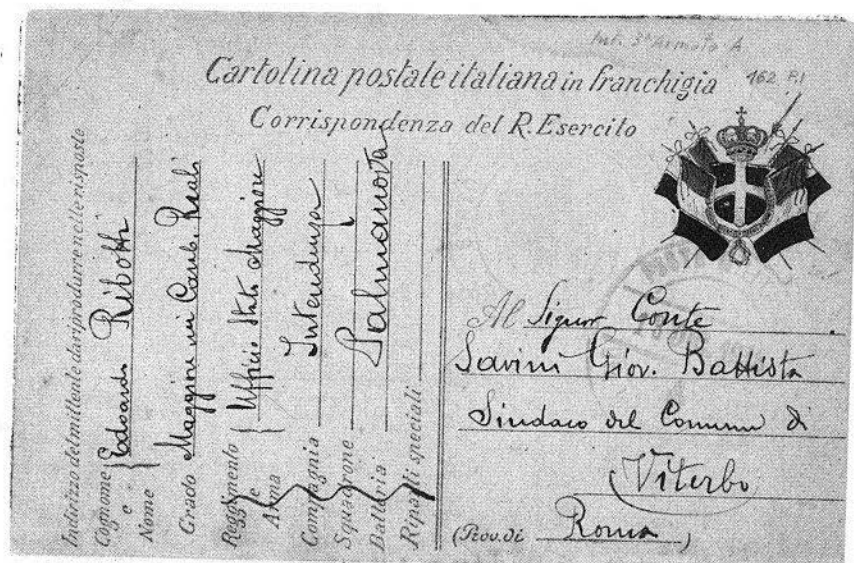 Int. 3ª Armata A
162 P.I
Cartolina postale italiana in franchigia
Corrispondenza del R. Esercito
Indirizzo del mittente da riprodurre nelle risposte
Cognome e Nome { Edoardo Ribotti
Grado Maggiore nei Carab. Reali
Reggimento e Arma { Ufficio Stato Maggiore
Compagnia Intendenza
Squadrone
Batteria Palmanova
Riparti speciali
Al Signor Conte
Savini Giov. Battista
Sindaco del Comune di
Viterbo
(Prov. di Roma)